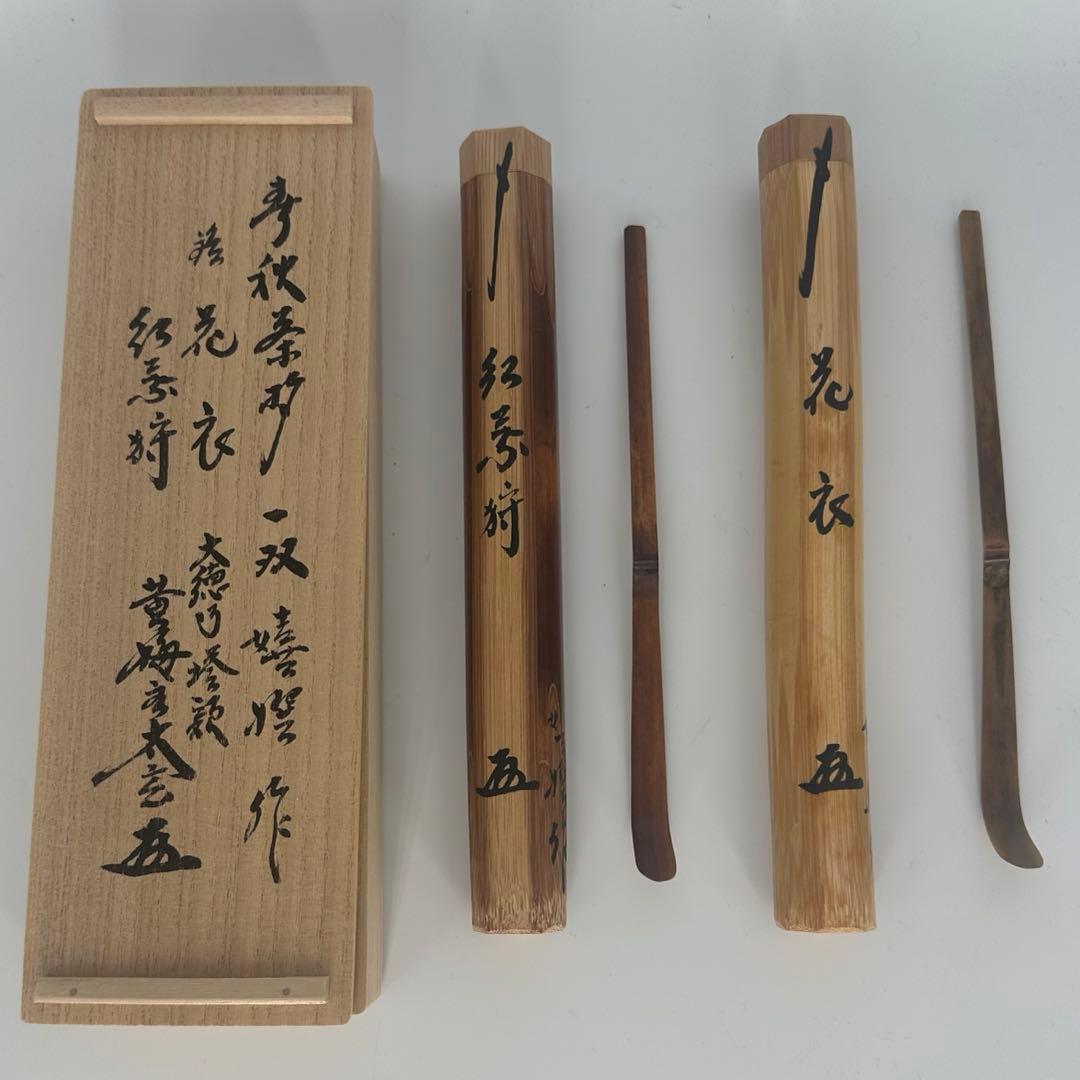 春秋茶杓 一双 嬉 作
銘 花衣
紅葉狩
大徳寺 塔頭
黄梅院太玄
〆 紅葉狩
〆 花衣